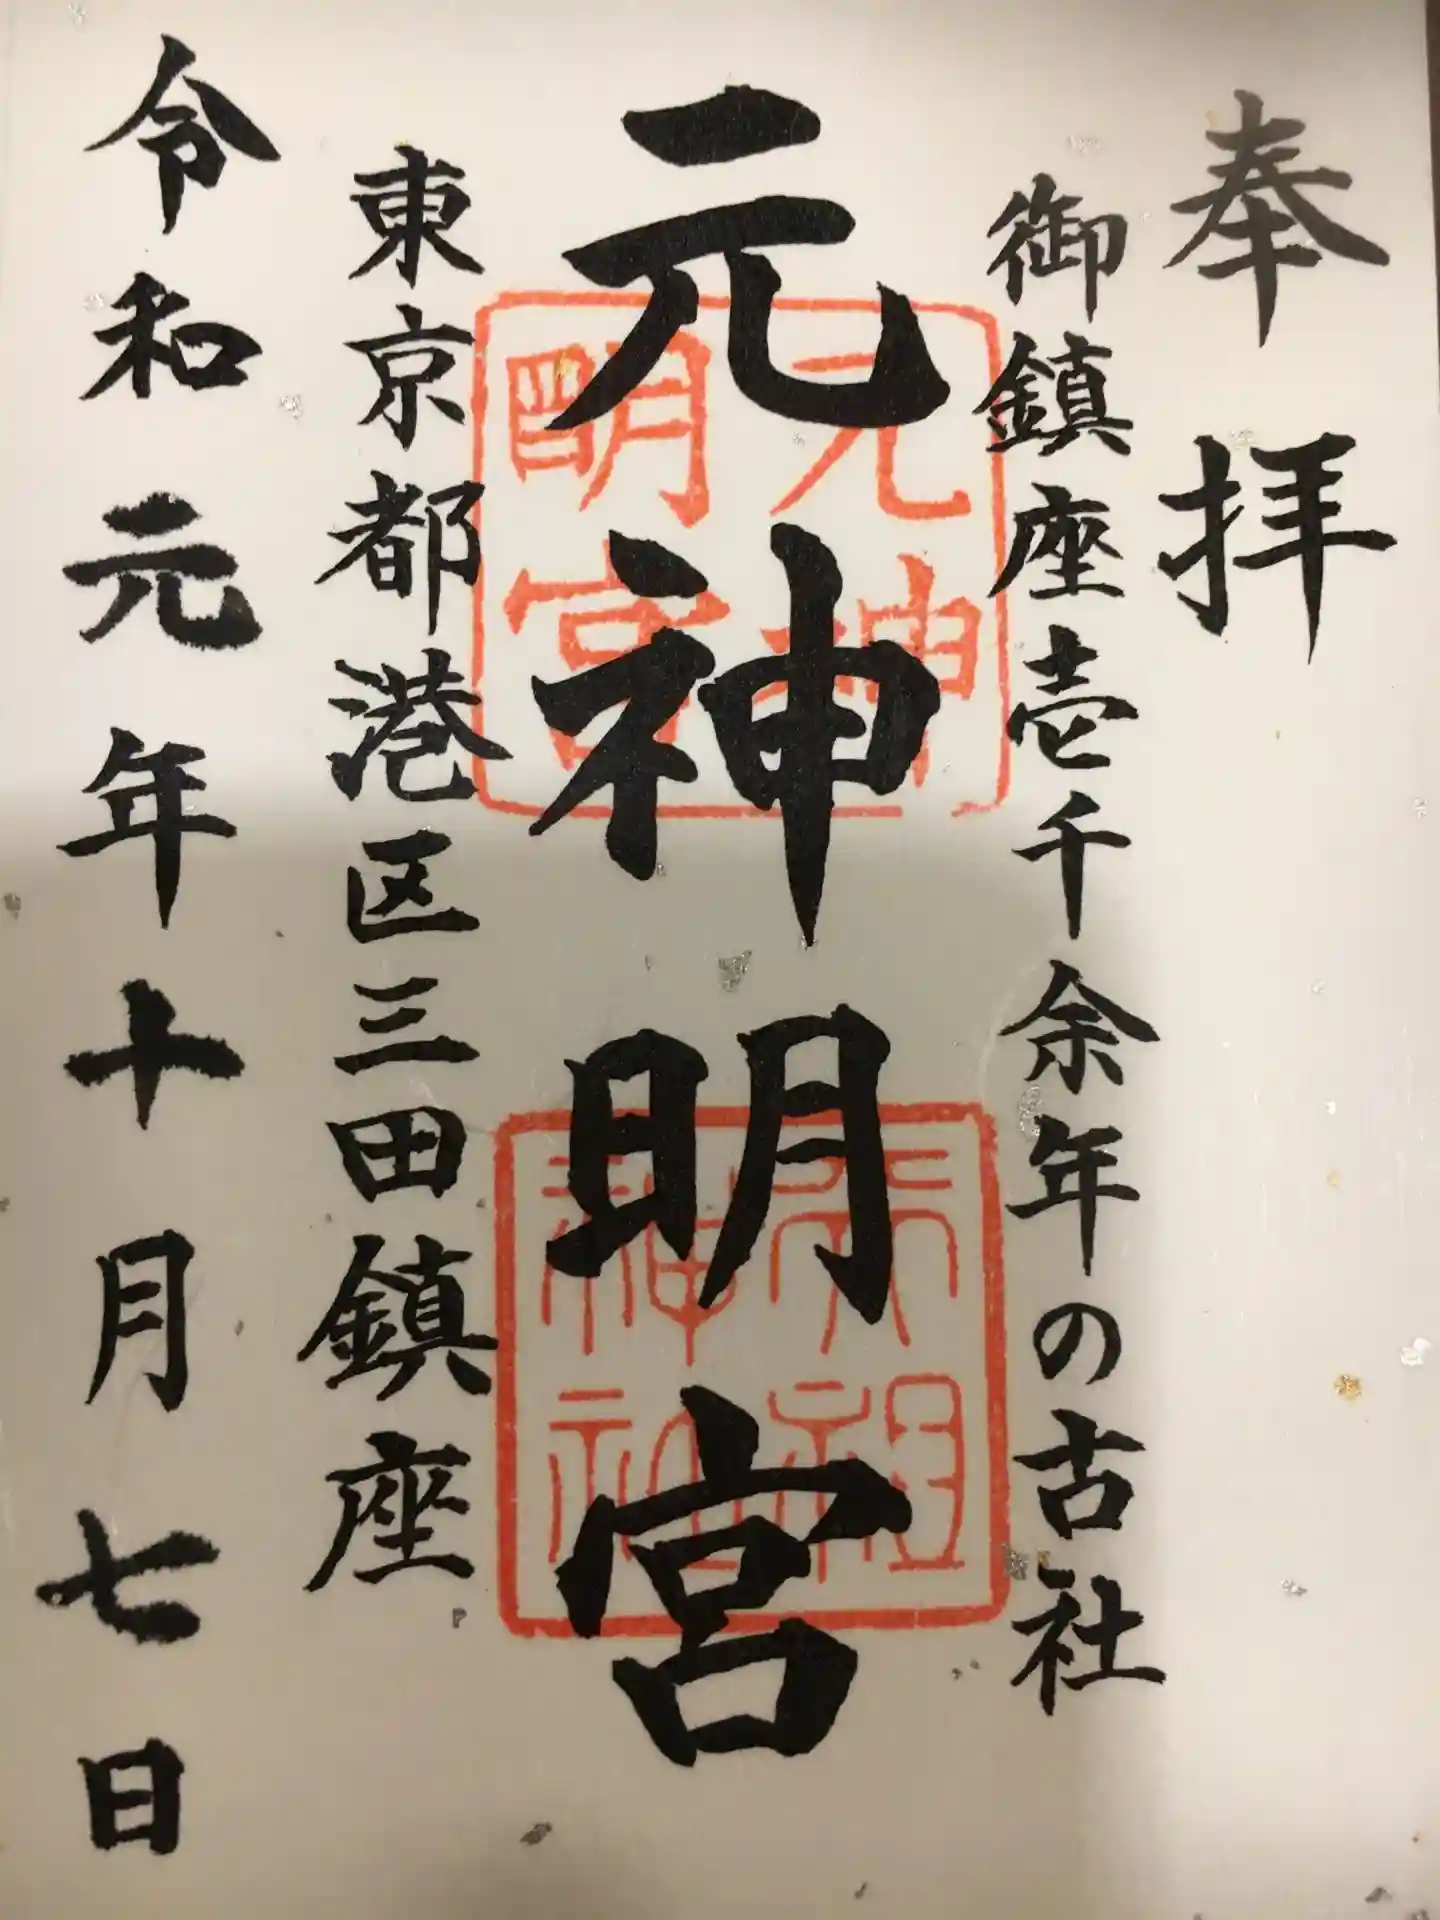 奉拝
御鎮座壱千余年の古社
元神明宮
東京都港区三田鎮座
令和元年十月七日
元神
明宮
天祖
神社